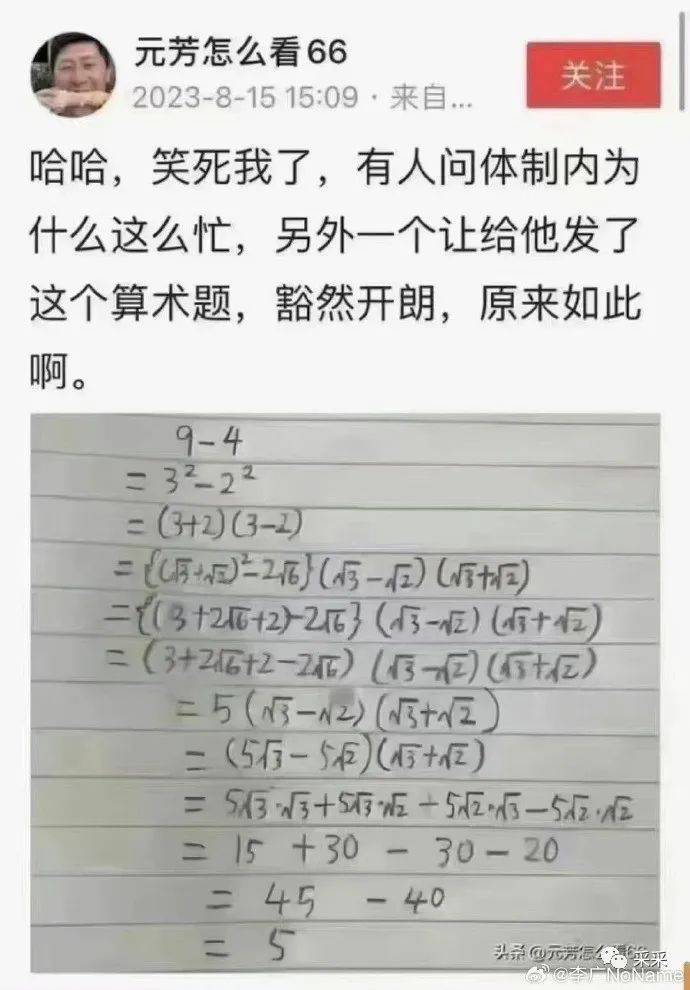 元芳怎么看66
2023-8-15 15:09 · 来自...
关注
哈哈，笑死我了，有人问体制内为
什么这么忙，另外一个让给他发了
这个算术题，豁然开朗，原来如此
啊。
9-4
= 3²-2²
= (3+2)(3-2)
= {(√3+√2)²-2√6}(√3-√2)(√3+√2)
= {(3+2√6+2)-2√6}(√3-√2)(√3+√2)
= (3+2√6+2-2√6)(√3-√2)(√3+√2)
= 5(√3-√2)(√3+√2)
= (5√3-5√2)(√3+√2)
= 5√3·√3+5√3·√2+5√2·√3-5√2·√2
= 15 +30 - 30-20
= 45 -40
= 5
头条@元芳怎么看66
采采
@李广NoName